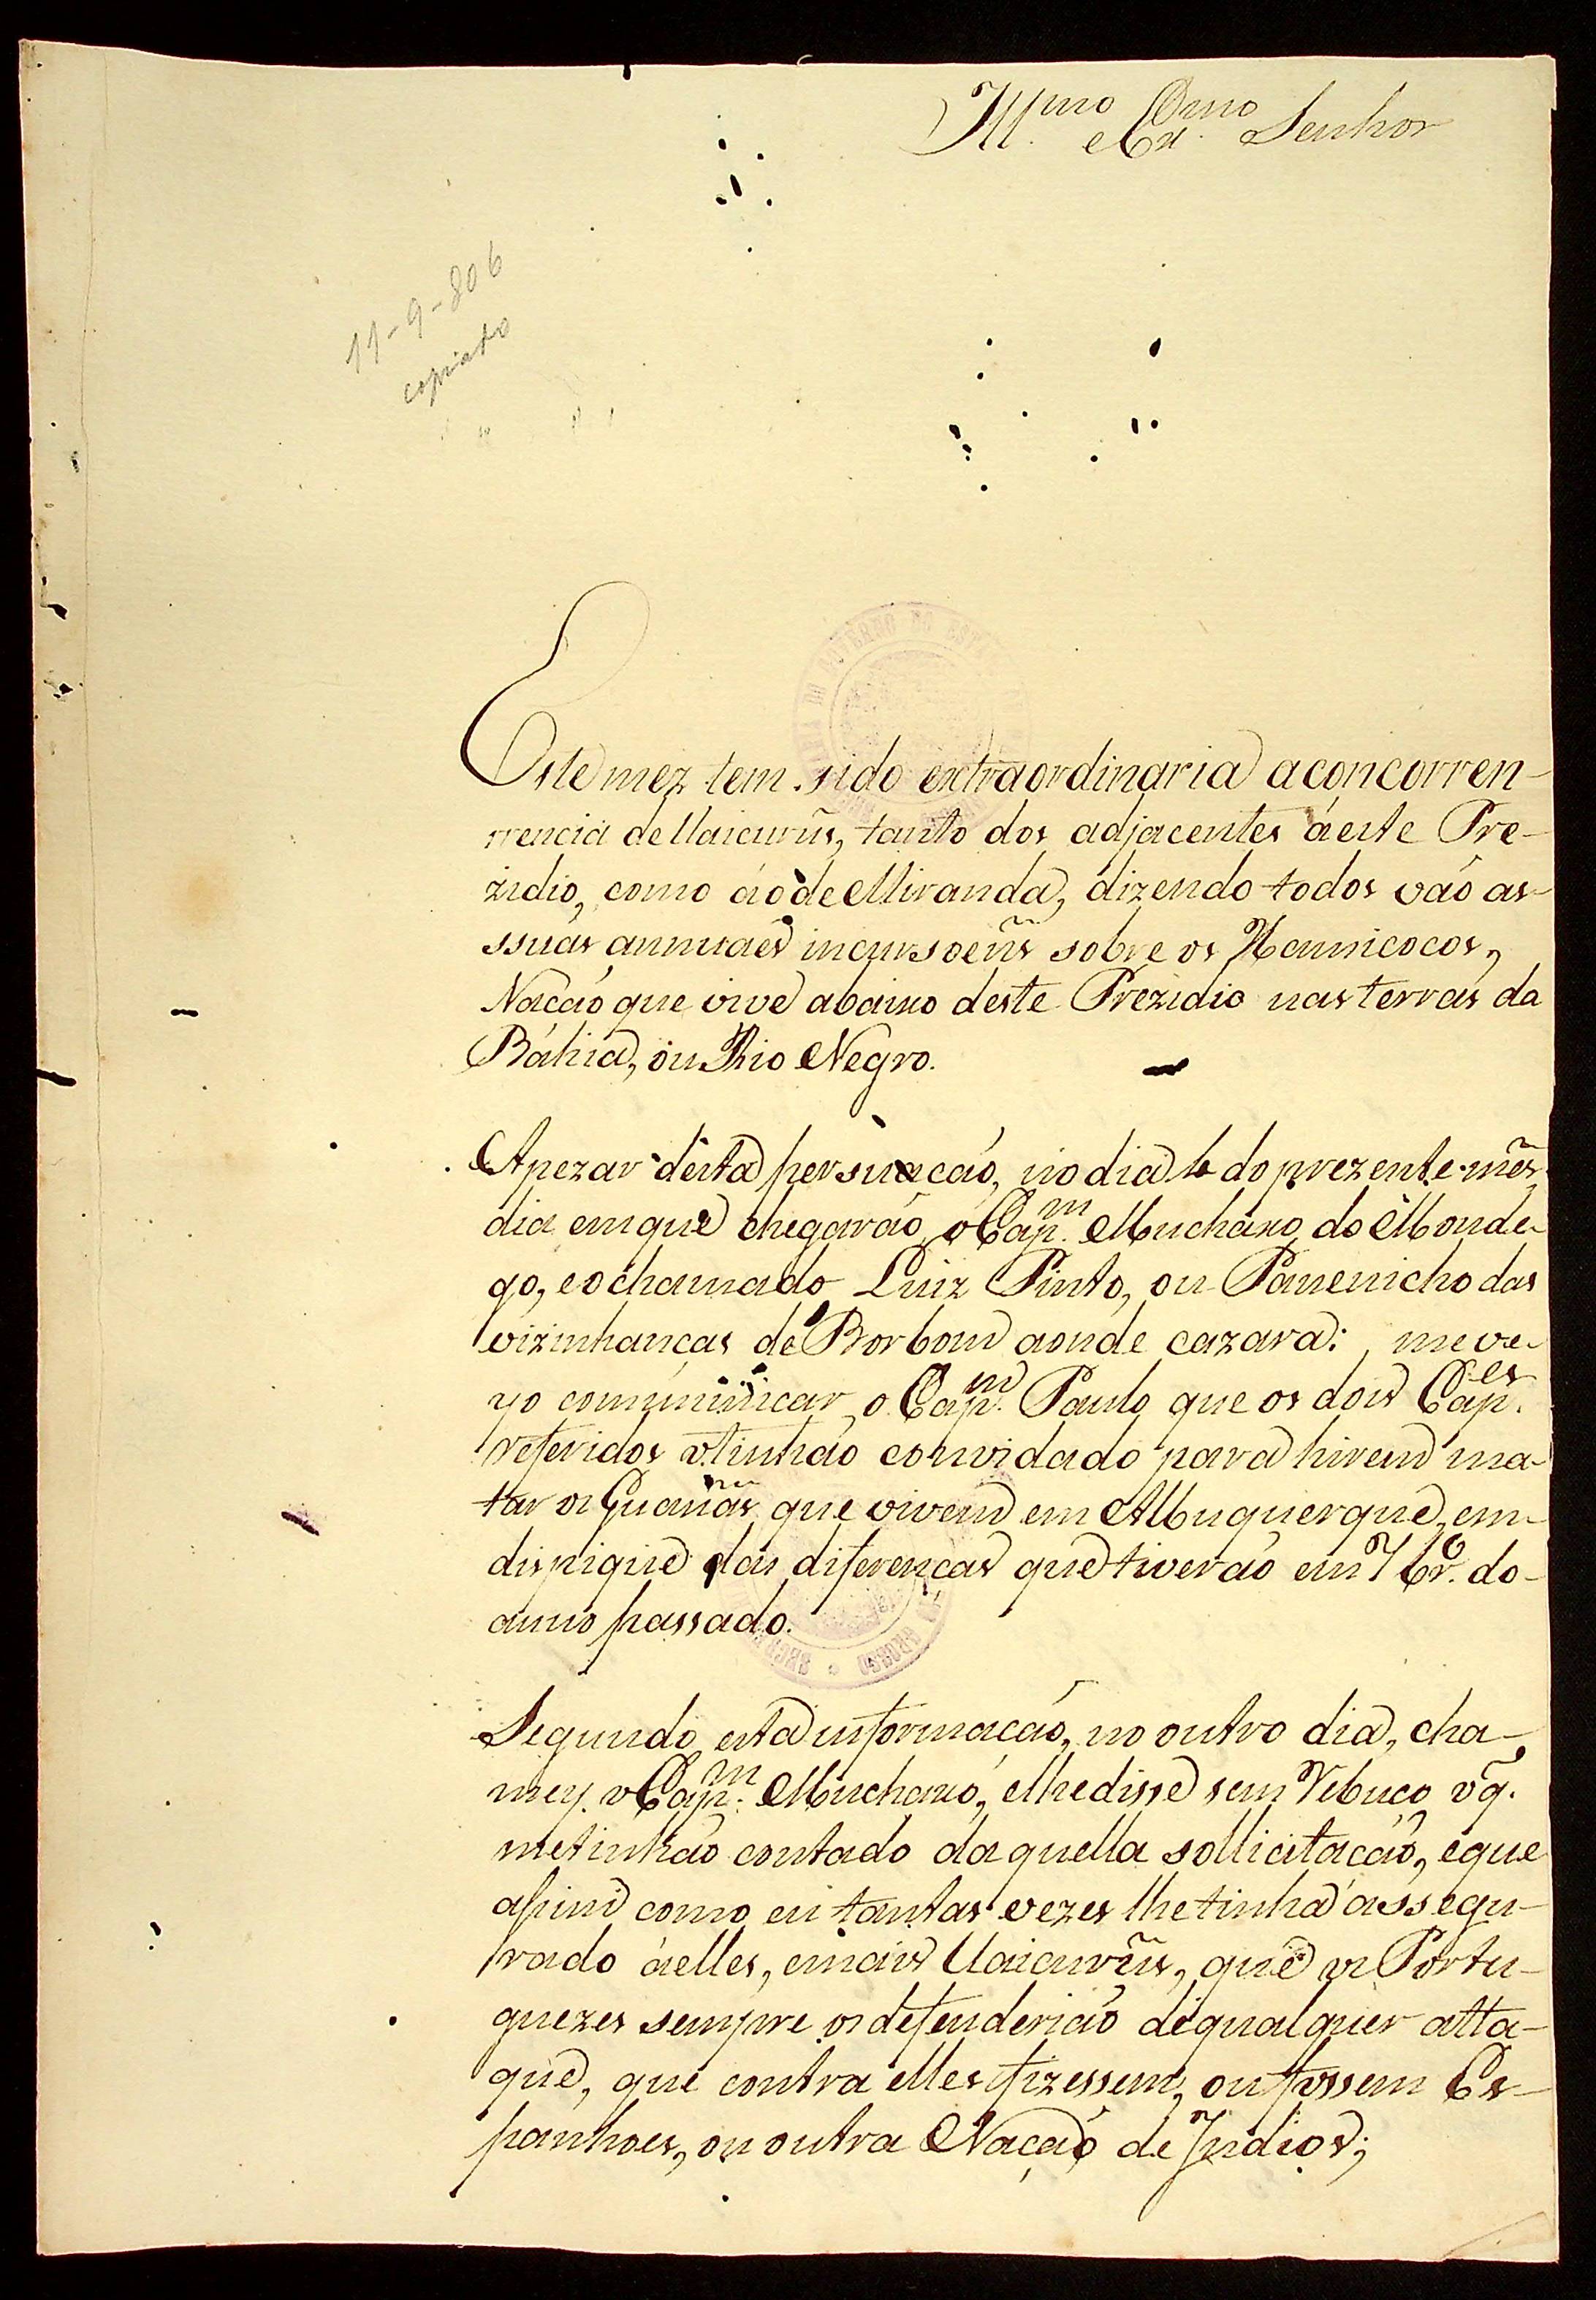 Ill.mo Ex.mo Senhor
11-9-806
copiado
Este mez tem sido extraordinaria a concorren-
rrencia de Uaicurûs, tanto dos adjacentes á este Pre-
zidio, como áo de Miranda, dizendo todos váo as-
ssuas annuaes incursoens sobre os Xamicocos,
Nação que vive abaixo deste Prezidio nas terras da
Báhia, ou Rio Negro.
Apezar desta persuacáo, no dia 6 do prezente mês,
dia em que chegaráo o Cap.m Muchaxo do Monde-
go, e o chamado Luiz Pinto, ou Panenicho das
vizinhancas de Borbom aonde cazara: me ve-
yo communicar o Cap.m Paulo que os dois Cap.es
referidos o tinháo convidado para hirem ma-
tar os Guanás que vivem em Albuquerque, em
dispique das diferenças que tiveráo em 7br.o do
anno passado.
Segundo esta informacáo, no outro dia, cha-
mey o Cap.m Muchaxo, e lhe disse sem rebuço o q.
me tinháo contado daquella sollicitacáo, e que
assim como eu tantas vezes lhe tinha assegu-
rado á elles, e mais Uaicurûs, que os Portu-
guezes sempre os defenderiáo de qualquer atta-
que, que contra elles fizessem, ou fossem Es-
panhoes, ou outra Naçáo de Indios;